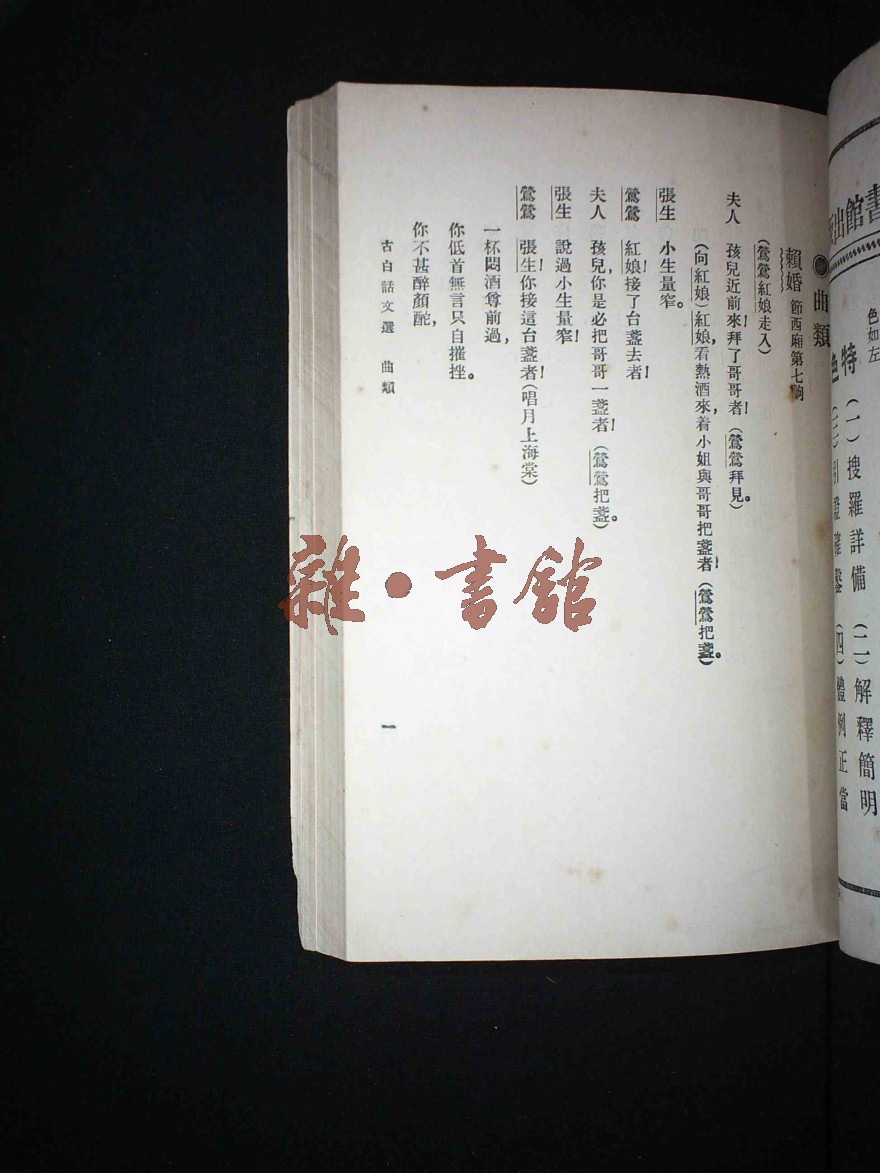 書館出
色如左
特色
(一)搜羅詳備 (二)解釋簡明
(三)引證確鑿 (四)體例正當
曲類
賴婚 節西廂第七齣
(鶯鶯紅娘走入)
夫人 孩兒近前來拜了哥哥者!(鶯鶯拜見)
(向紅娘)紅娘,看熱酒來,着小姐與哥哥把盞者!(鶯鶯把盞。)
張生 小生量窄。
鶯鶯 紅娘!接了台盞去者!
夫人 孩兒,你是必把哥哥一盞者!(鶯鶯把盞。)
張生 說過小生量窄!
鶯鶯 張生!你接這台盞者!(唱月上海棠)
一杯悶酒尊前過,
你低首無言只自摧挫。
你不甚醉顏酡,
古白話文選 曲類
一
雜·書館